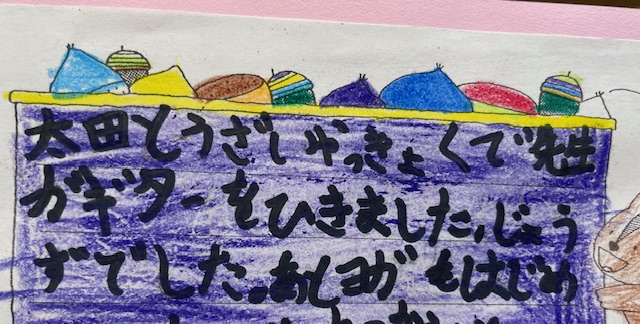 太田とうざいやっきょくで先生
がギターをひきました。じょう
ずでした。あしヨガもはじめ